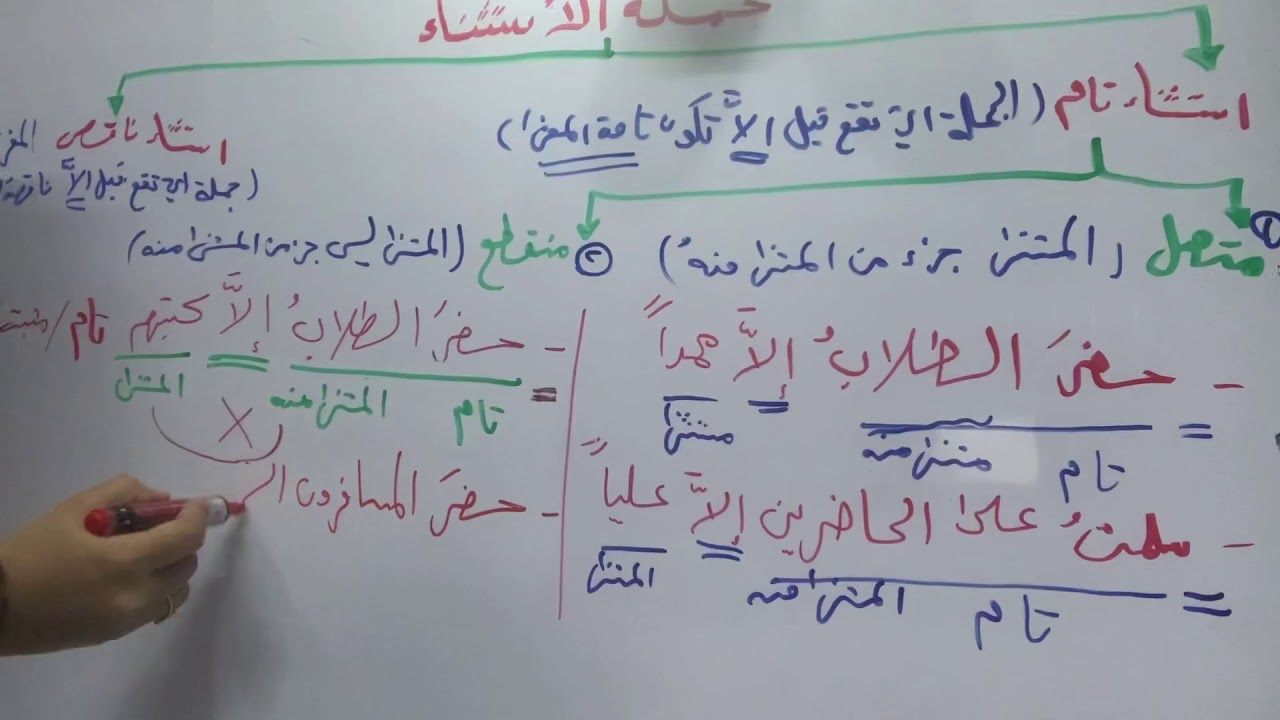 جملة الاستثناء
استثناء تام (الجملة التي تقع قبل إلاَّ تكون تامة المعنى)
استثناء ناقص
(جملة التي تقع قبل إلاَّ
① متصل (المستثنى جزء من المستثنى منهُ)
② منقطع (المستثنى ليس جزء من المستثنى منه)
- حضرَ الطلابُ إلاَّ محمداً
= تام مستثنى منه مستثنى
- سلمتُ على الحاضرين إلاَّ علياً
= تام المستثنى منه المستثنى
- حضرَ الطلابُ إلاَّ كتبهم تام /
= تام المستثنى منه المستثنى
X
- حضرَ المسافرون